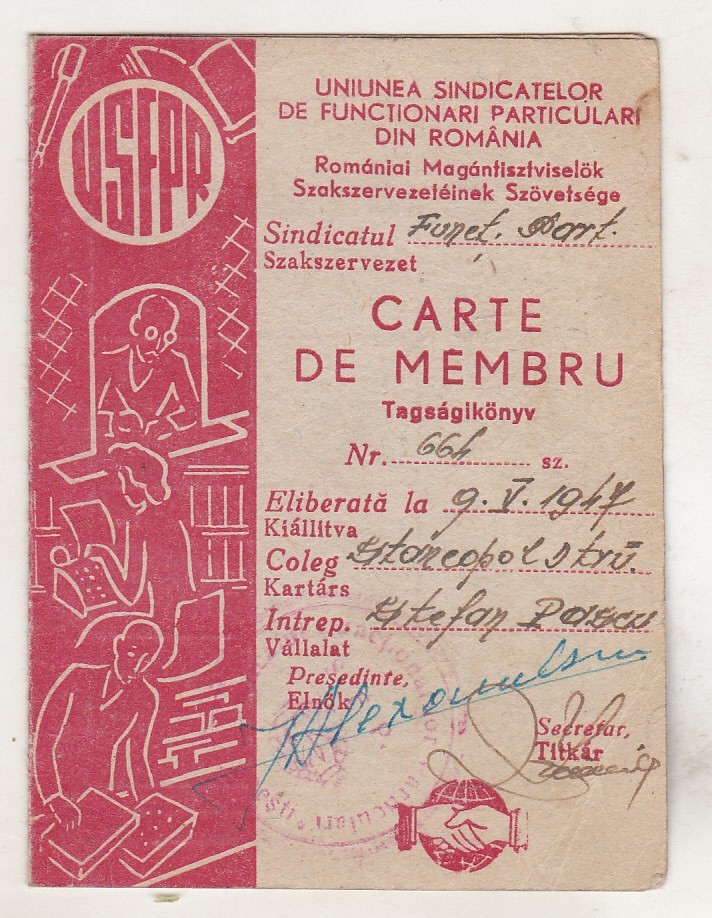 USFPR
UNIUNEA SINDICATELOR
DE FUNCTIONARI PARTICULARI
DIN ROMÂNIA
Romániai Magántisztviselök
Szakszervezetéinek Szövetsége
Sindicatul Funct. Part.
Szakszervezet
CARTE
DE MEMBRU
Tagságikönyv
Nr. 664 sz.
Eliberată la 9.V.1947
Kiállitva
Coleg
Kartárs
Intrep. Stefan Pascu
Vállalat
Președinte,
Elnök
Secretar,
Titkár